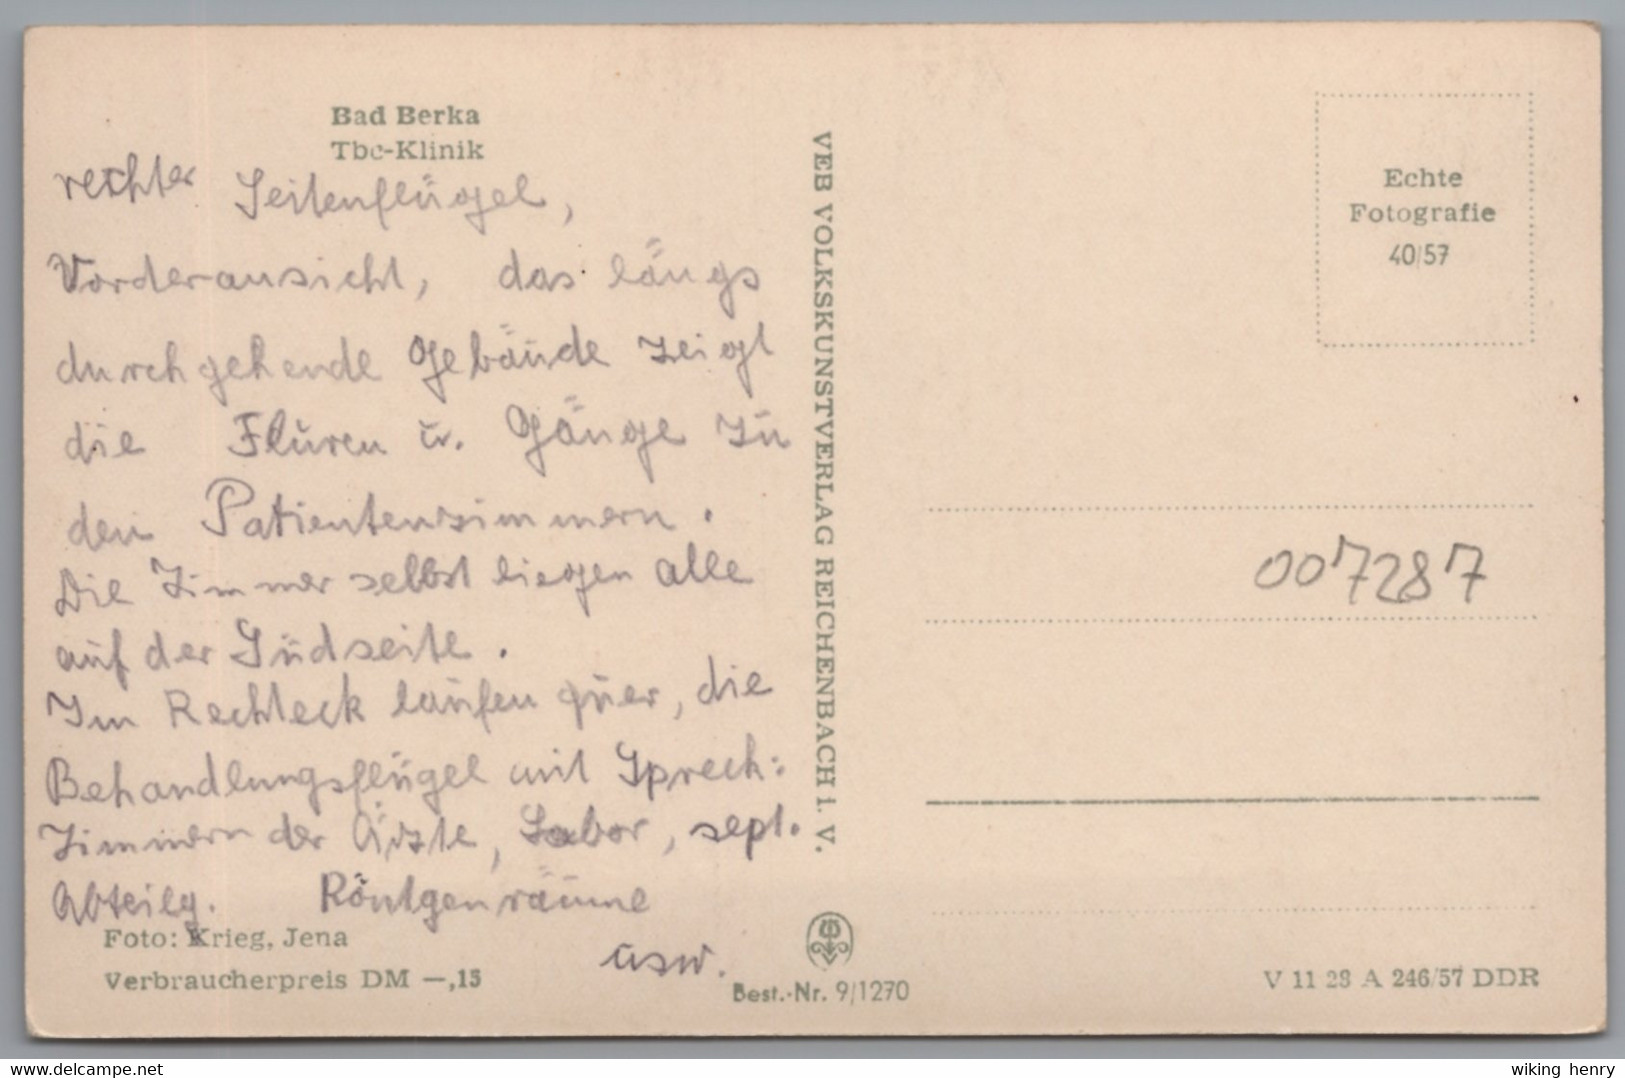 Bad Berka
Tbc-Klinik
rechter Seitenflügel,
Vorderansicht, das längs
durchgehende Gebäude zeigt
die Fluren u. Gänge zu
den Patientenzimmern.
Die Zimmer selbst liegen alle
auf der Südseite.
Im Rechteck laufen quer, die
Behandlungsflügel mit Sprech:
Zimmern der Ärzte, Labor, sept.
Abteilg. Röntgenräume
usw.
Foto: Krieg, Jena
Verbraucherpreis DM —,15
VEB VOLKSKUNSTVERLAG REICHENBACH I. V.
Best.-Nr. 9/1270
Echte
Fotografie
40/57
007287
V 11 28 A 246/57 DDR
wiking henry